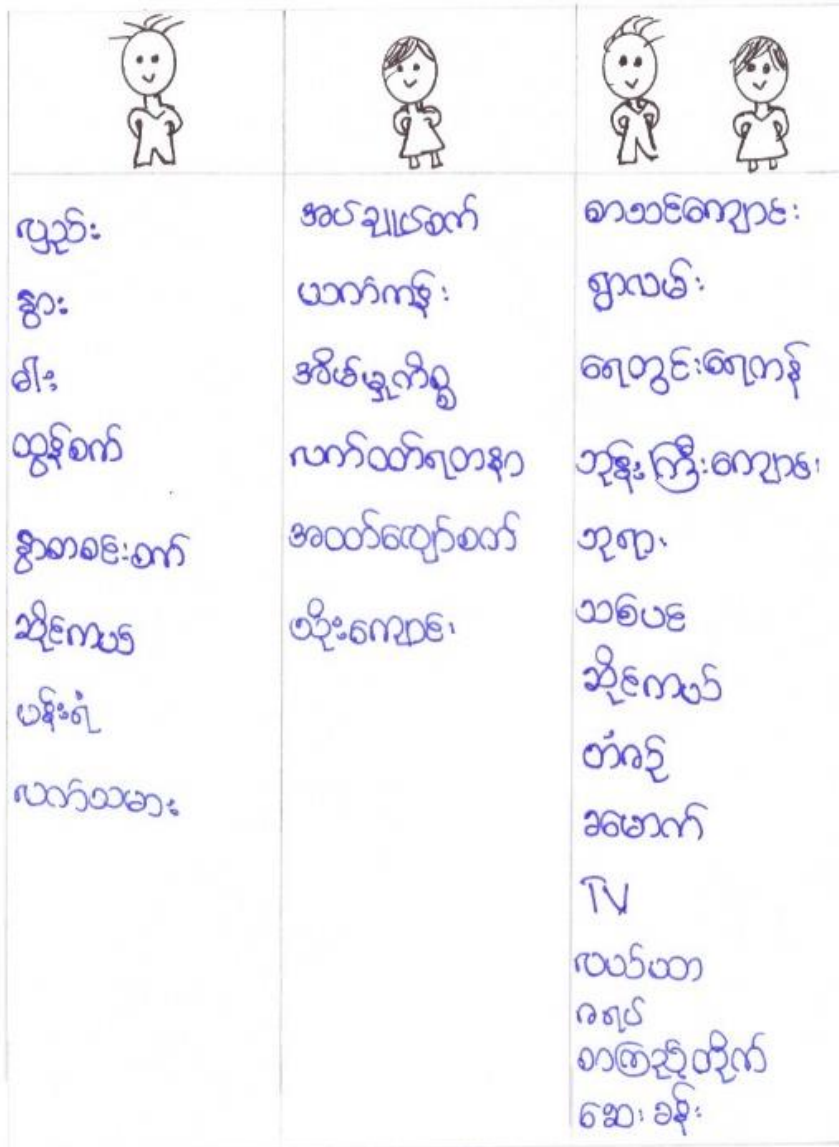 လှည်း
နွား
ဓါး
ထွန်စက်
နွားစာစဉ်းစက်
ဆိုင်ကယ်
ပန်းရံ
လက်သမား
အပ်ချုပ်စက်
ယက်ကန်း
အိမ်မှုကိစ္စ
လက်ဝတ်ရတနာ
အဝတ်လျှော်စက်
သိုးကျောင်း
စာသင်ကျောင်း
ရွာလမ်း
ရေတွင်းရေကန်
ဘုန်းကြီးကျောင်း
ဘုရား
သစ်ပင်
ဆိုင်ကယ်
တံစဉ်
ခမောက်
TV
လယ်ယာ
ဇရပ်
စာကြည့်တိုက်
ဆေးခန်း